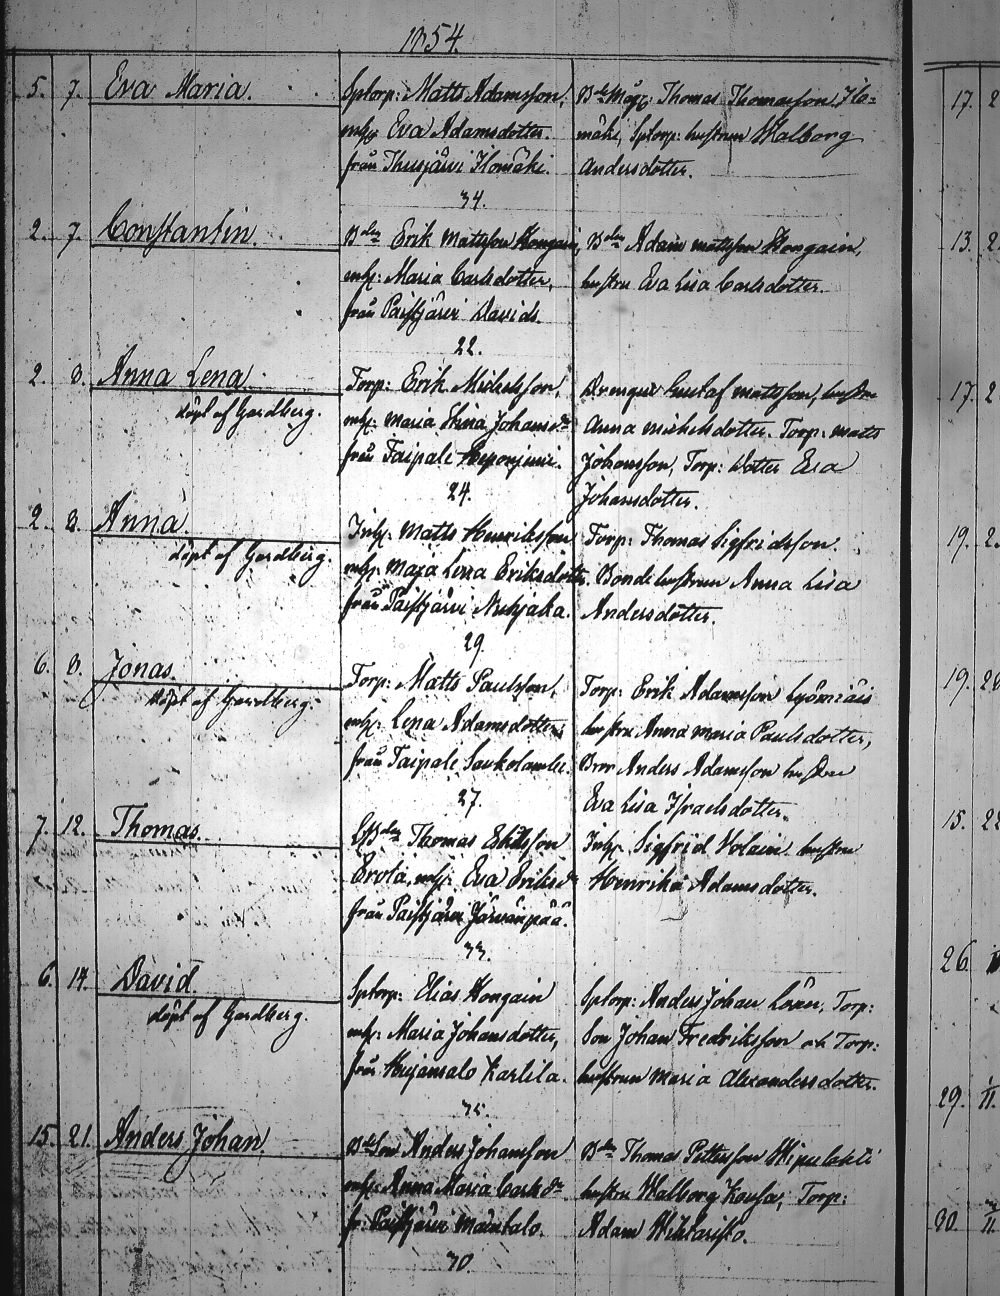 1854.
5. 7. Eva Maria.
Sptorp: Matts Adamsson,
mh: Eva Adamsdotter.
från
34.
Thomas Thomasson,
mäki, Sptorp: hustrun Walborg
Andersdotter.
2. 7. Constantin.
Erik Mattsson Hongain,
mh: Maria Carlsdotter,
från Paistjärvi Davids.
22.
Adam Mattsson Hongain,
hustru Eva Lisa Carlsdotter.
2. 8. Anna Lena.
döpt af Gardberg.
Torp: Erik Michelsson,
mh: Maria Stina Johansdr
från Taipale
24.
Drengen Gustaf Mattsson, hustru
Anna Michelsdotter. Torp: Matts
Johansson, Torp: Dotter Eva
Johansdotter.
2. 8. Anna.
döpt af Gardberg.
Inh: Matts Henriksson
mh: Maja Lena Eriksdotter.
från Paistjärvi
29.
Torp: Thomas Sigfridsson.
Bonde hustrun Anna Lisa
Andersdotter.
6. 8. Jonas.
döpt af Gardberg.
Torp: Matts Paulsson,
mh: Lena Adamsdotter,
från Taipale
27.
Torp: Erik Adamsson
hustru Anna Maria Paulsdotter,
Bror Anders Adamsson hustru
Eva Lisa Israelsdotter.
7. 12. Thomas.
Thomas Eskilsson
Erola, mh: Eva Eriksdr
från Paistjärvi Järvänpää.
33.
Inh: Sigfrid Volain hustru
Henrika Adamsdotter.
6. 14. David.
döpt af Gardberg.
Sptorp: Elias Hongain
mh: Maria Johansdotter,
från Hujansalo Karlila.
35.
Sptorp: Anders Johan Torp:
Son Johan Fredriksson och Torp:
hustrun Maria Alexandersdotter.
15. 21. Anders Johan.
Anders Johansson
mh: Anna Maria Carlsdr
fr: Paistjärvi Mäntalo.
30.
Thomas Pettersson
hustru Walborg Torp:
Adam
17. 2
13. 2
17. 2
19. 2
19. 20
15. 22
26
29. 11.
30. 11.